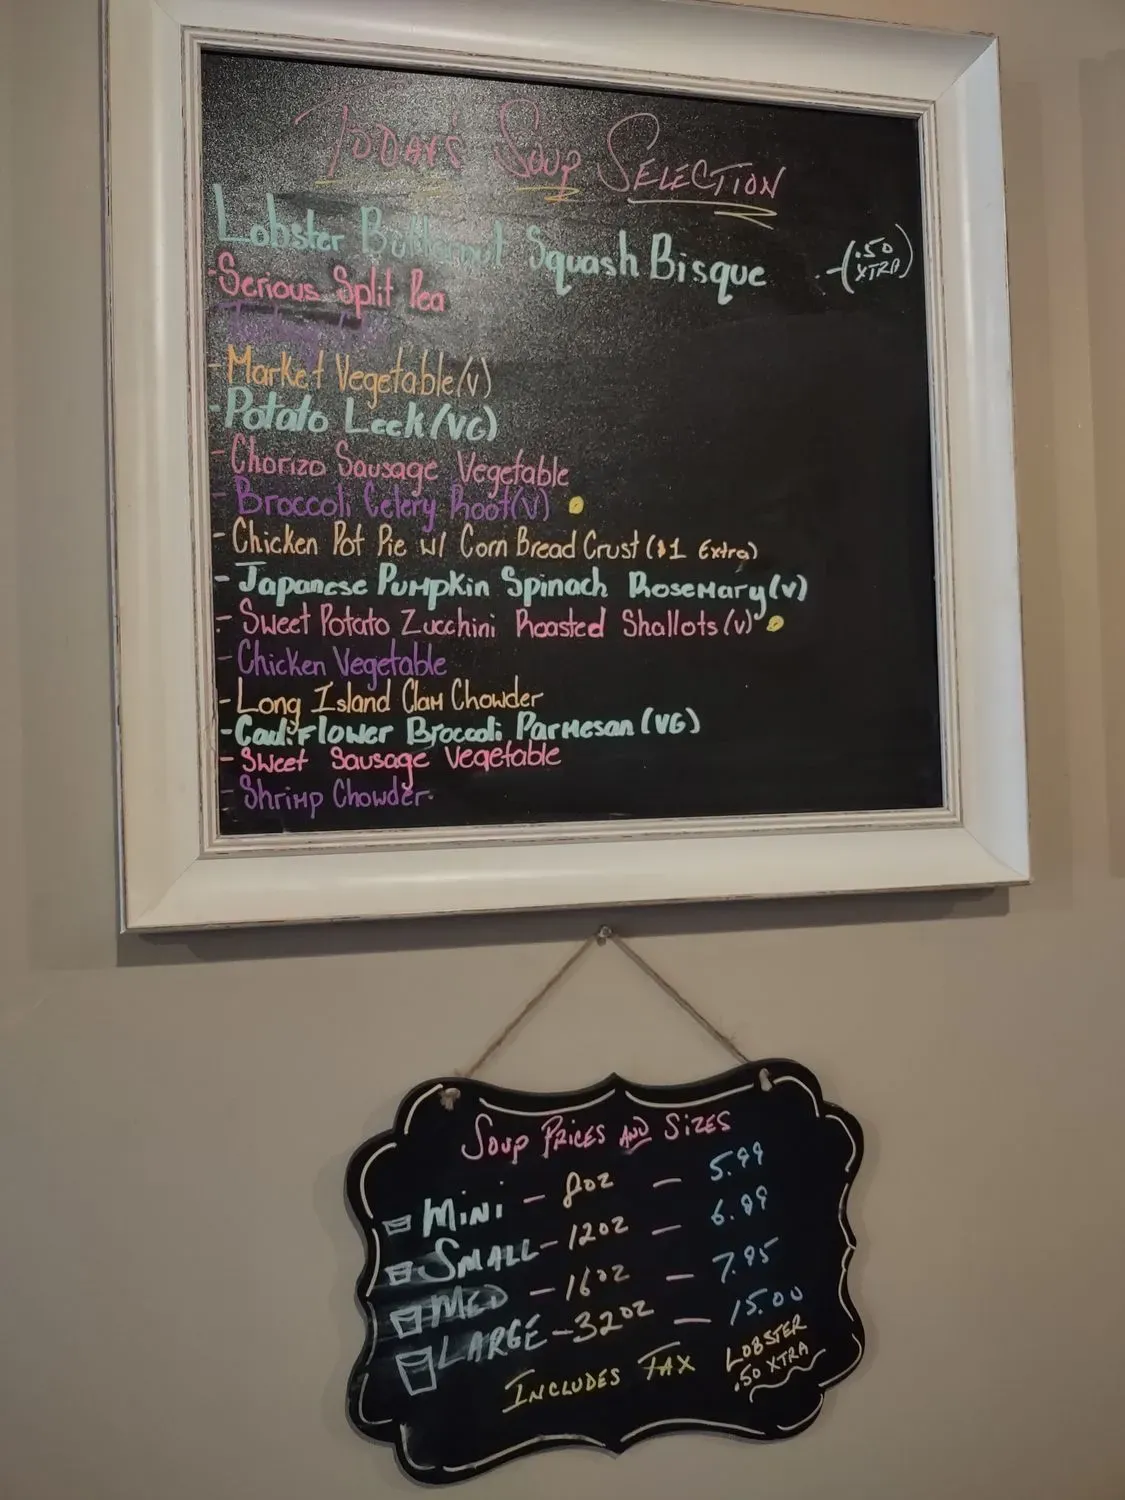 Today's Soup Selection
Lobster Butternut Squash Bisque -(.50 XTRA)
-Serious Split Pea
-Market Vegetable(v)
-Potato Leek(VG)
-Chorizo Sausage Vegetable
-Broccoli Celery Root(v)
-Chicken Pot Pie w/ Corn Bread Crust ($1 Extra)
-Japanese Pumpkin Spinach Rosemary(v)
-Sweet Potato Zucchini Roasted Shallots(v)
-Chicken Vegetable
-Long Island Clam Chowder
-Cauliflower Broccoli Parmesan (VG)
-Sweet Sausage Vegetable
-Shrimp Chowder
Soup Prices and Sizes
Mini - 8oz - 5.99
Small - 12oz - 6.99
Med - 16oz - 7.95
Large - 32oz - 15.00
Includes Tax
Lobster
.50 Xtra